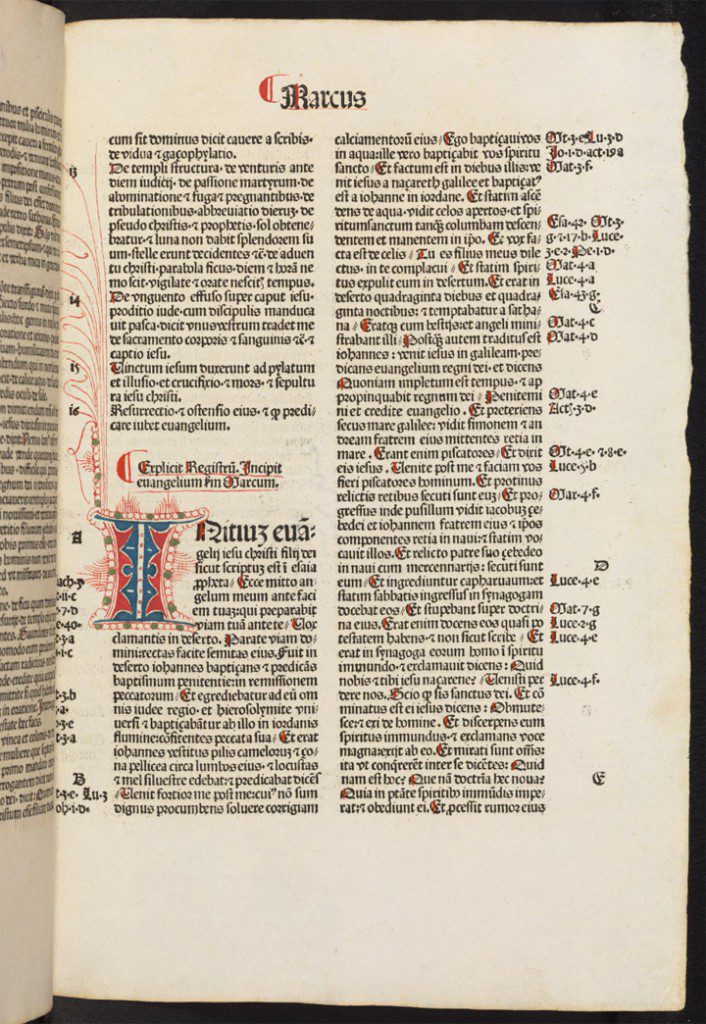 Marcus
cum sit dominus dicit cauere a scribis·
de vidua ⁊ gaçophylatio.
13
De templi structura·de venturis ante
diem iudicij·de passione martyrum·de
abominatione ⁊ fuga ⁊ pregnantibus·de
tribulationibus·abbreuiatio dieruz·de
pseudo christis·⁊ prophetis·sol obtene-
bratur·⁊ luna non dabit splendorem su
um·stelle erunt decidentes ⁊c̄·de aduen
tu christi·parabola ficus·diem ⁊ horā ne
mo scit·vigilate ⁊ orate nescit; tempus.
14
De vnguento effuso super caput iesu·
proditio iude·cum discipulis manduca
uit pasca·dicit vnus vestrum tradet me
de sacramento corporis ⁊ sanguinis ⁊c̄·⁊
captio iesu.
15
Uinctum iesum duxerunt ad pylatum
et illusio·et crucifixio·⁊ mors·⁊ sepultu
ra iesu christi.
16
Resurrectio·⁊ ostensio eius·⁊ ꝙ predi-
care iubet euangelium.
Explicit Registrū. Incipit
euangelium ẜm Marcum.
A
INitiuz euā-
gelij iesu christi filij dei
sicut scriptuz est ī esaia
ꝓpheta·Ecce mitto an-
gelum meum ante faci
em tuaz:qui preparabit
viam tuā ante te·Uox
clamantis in deserto. Parate viam do-
mini:rectas facite semitas eius.Fuit in
deserto iohannes baptiçans·⁊ predicās
baptismum penitentie:in remissionem
peccatorum·Et egrediebatur ad eū om
nis iudee regio·et hierosolymite vni-
uersi·⁊ baptiçabātur ab illo in iordanis
flumine:cōfitentes peccata sua·Et erat
iohannes vestitus pilis cameloruz·⁊ ço-
na pellicea circa lumbos eius·⁊ locustas
B
⁊ mel siluestre edebat:⁊ predicabat dicēs
Uenit fortior me post me:cui⁹ nō sum
dignus procumbens soluere corrigiam
calciamentorū eius·Ego baptiçaui vos Mt·3·e Lu·3·d
in aqua:ille vero baptiçabit vos spiritu Jo·1·d·act·19a
sancto·Et factum est in diebus illis:ve Mat·3·f.
nit iesus a naçareth galilee:et baptiçat⁹
est a iohanne in iordane. Et statim ascē
dens de aqua·vidit celos apertos·et spi-
ritum sanctum tanq̄ columbam descen- Esa·42· Mt·3·
dentem et manentem in ipo. Et vox fa- g·⁊·17·b·Luce·
cta est de celis·Tu es filius meus dile 3·e·2·Pe·1·d·
ctus·in te complacui·Et statim spiri- Mat·4·a
tus expulit eum in desertum. Et erat in Luce·4·a
deserto quadraginta diebus et quadra-
ginta noctibus:⁊ temptabatur a satha- C
na·Eratq̄ cum bestijs:et angeli mini- Mat·4·c
strabant illi·Postq̄ autem traditus est Mat·4·d
iohannes:venit iesus in galileam:pre-
dicans euangelium regni dei·et dicens
Quoniam impletum est tempus·⁊ ap
propinquabit regnum dei·Penitemi Mat·4·e
ni et credite euangelio·Et preteriens Act·3·d·
secus mare galilee:vidit simonem ⁊ an
dream fratrem eius mittentes retia in
mare·Erant enim piscatores·Et dixit Mt·4·e·⁊·8·e·
eis iesus·Uenite post me·⁊ faciam vos Luce·5·b
fieri piscatores hominum. Et protinus
relictis retibus secuti sunt euz·Et pro- Mat·4·f.
gressus inde pusillum vidit iacobuz çe-
bedei et iohannem fratrem eius·⁊ ipos
componentes retia in naui:⁊ statim vo-
cauit illos. Et relicto patre suo çebedeo D
in naui cum mercennarijs: secuti sunt
eum·Et ingrediuntur capharnaum:et Luce·4·e
statim sabbatis ingressus in synagogam
docebat eos·Et stupebant super doctri- Mat·7·g
na eius. Erat enim docens eos quasi po Luce·2·g
testatem habens·⁊ non sicut scribe·Et Luce·4·e
erat in synagoga eorum homo ī spiritu
immundo·⁊ exclamauit dicens: Quid
nobis ⁊ tibi iesu naçarene? Uenisti per Luce·4·f.
dere nos. Scio ꝙ sis sanctus dei. Et cō
minatus est ei iesus dicens: Obmute-
sce:⁊ exi de homine. Et discerpens eum
spiritus immundus·⁊ exclamans voce
magna:exijt ab eo. Et mirati sunt om̄s:
ita vt cōq̄rerēt inter se dicētes: Quid
nam est hoc? Que nā doctrīa hec noua? E
Quia in ptāte spiritib⁹ immūdis impe-
rat:⁊ obediunt ei. Et ꝓcessit rumor eius